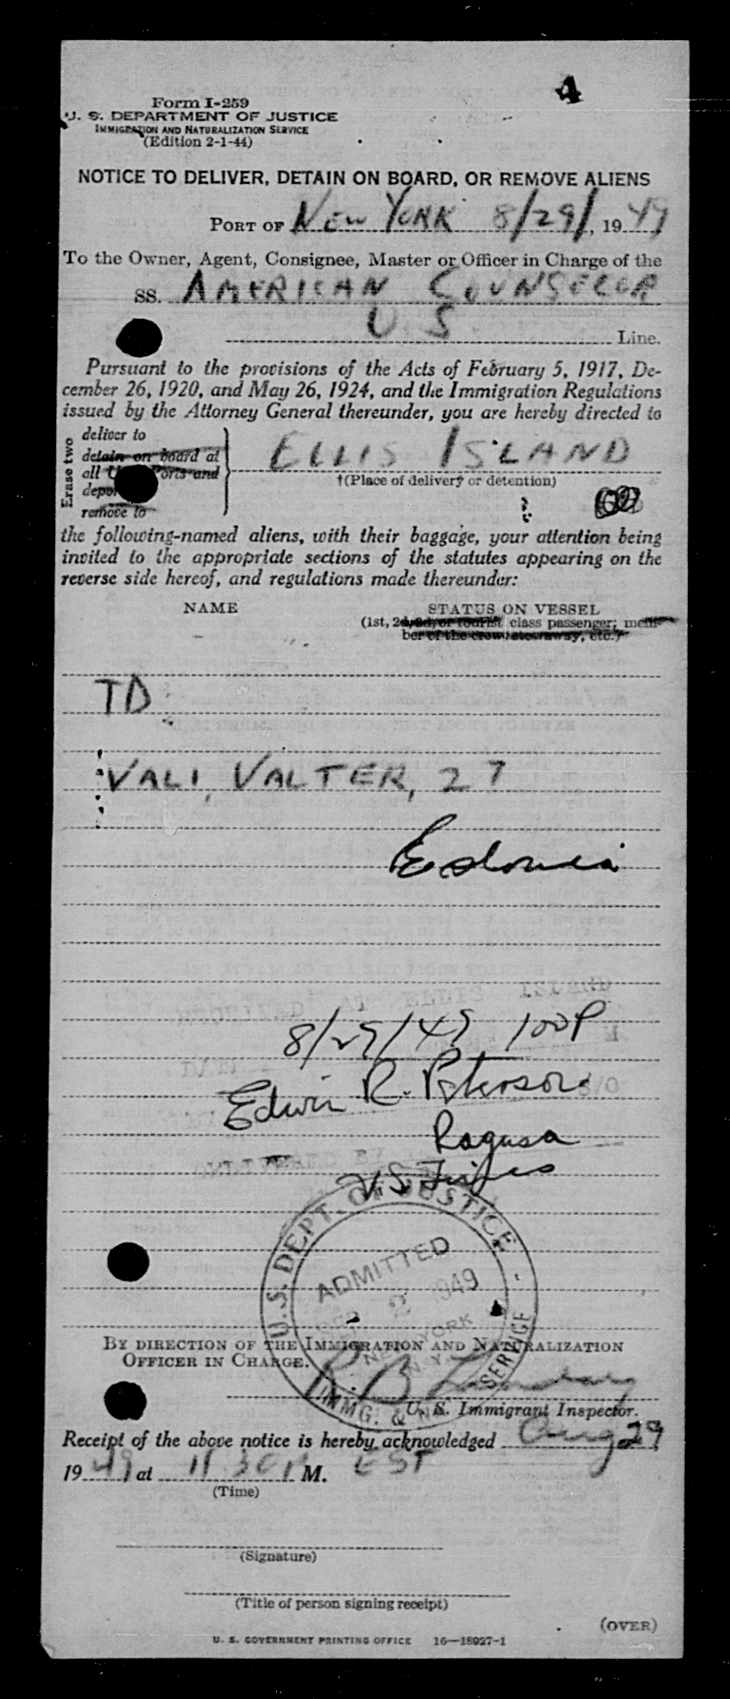 4
Form I-259
U. S. DEPARTMENT OF JUSTICE
IMMIGRATION AND NATURALIZATION SERVICE
(Edition 2-1-44)
NOTICE TO DELIVER, DETAIN ON BOARD, OR REMOVE ALIENS
PORT OF NEW YORK 8/29/, 1949
To the Owner, Agent, Consignee, Master or Officer in Charge of the
SS. AMERICAN COUNSELOR
U S Line.
Pursuant to the provisions of the Acts of February 5, 1917, De-
cember 26, 1920, and May 26, 1924, and the Immigration Regulations
issued by the Attorney General thereunder, you are hereby directed to
Erase two
deliver to
detain on board at
all U. S. Ports and
deport
remove to
ELLIS ISLAND
†(Place of delivery or detention)
the following-named aliens, with their baggage, your attention being
invited to the appropriate sections of the statutes appearing on the
reverse side hereof, and regulations made thereunder:
NAME STATUS ON VESSEL
(1st, 2d, 3d, or tourist class passenger; mem-
ber of the crew, stowaway, etc.)
TD
VALI, VALTER, 27
Estonia
8/29/49 100P
Edwin R. Peterson
Ragusa
U.S. Lines
U.S. DEPT. OF JUSTICE
ADMITTED
SEP 2 1949
NEW YORK
N. Y.
IMMG. & NAT. SERVICE
BY DIRECTION OF THE IMMIGRATION AND NATURALIZATION
OFFICER IN CHARGE.
U. S. Immigrant Inspector.
Receipt of the above notice is hereby acknowledged Aug 29
1949 at 11 30 A M. EST
(Time)
(Signature)
(Title of person signing receipt)
(OVER)
U. S. GOVERNMENT PRINTING OFFICE 16—18927-1